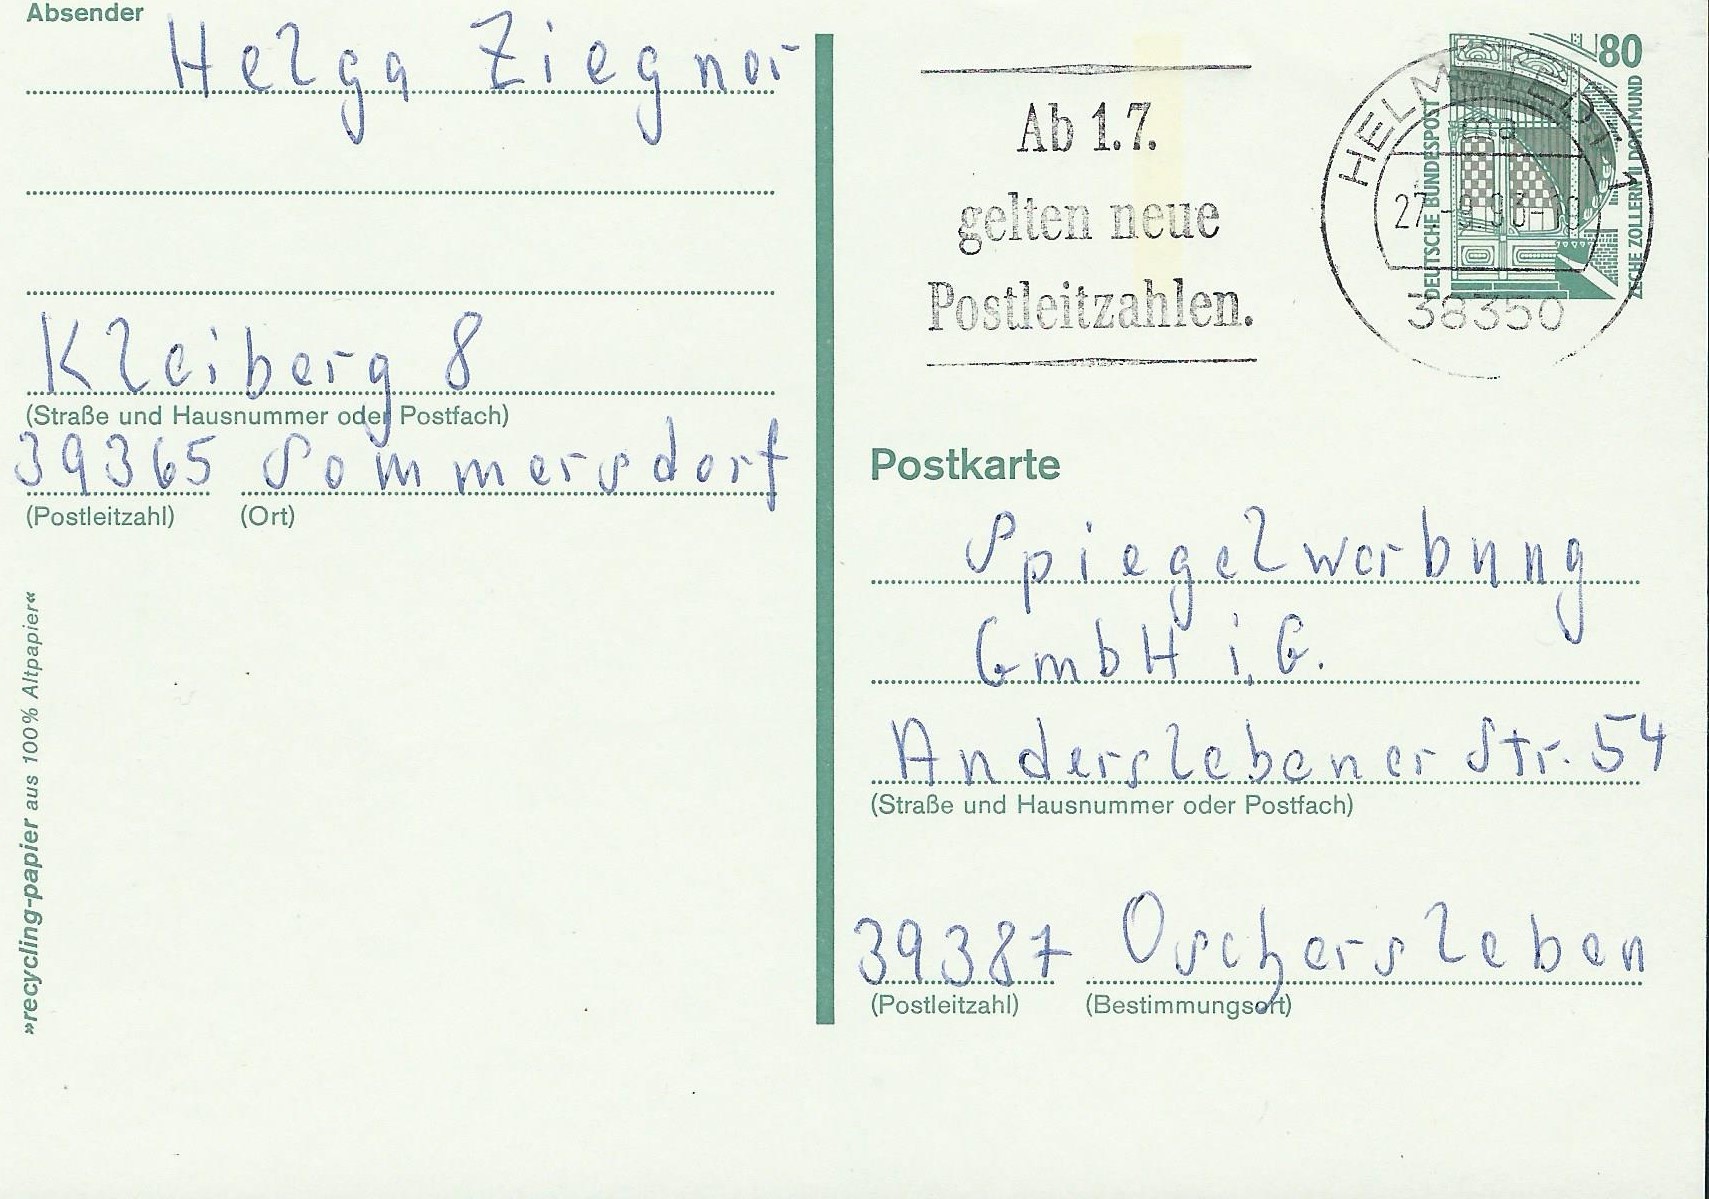 Absender
Helga Ziegner
Kleiberg 8
(Straße und Hausnummer oder Postfach)
39365 Sommersdorf
(Postleitzahl) (Ort)
»recycling-papier aus 100% Altpapier«
Ab 1.7.
gelten neue
Postleitzahlen.
80
DEUTSCHE BUNDESPOST
ZECHE ZOLLERN II DORTMUND
HELMSTEDT 1
38350
Postkarte
Spiegelwerbung
GmbH i. G.
Anderslebener Str. 54
(Straße und Hausnummer oder Postfach)
39387 Oschersleben
(Postleitzahl) (Bestimmungsort)